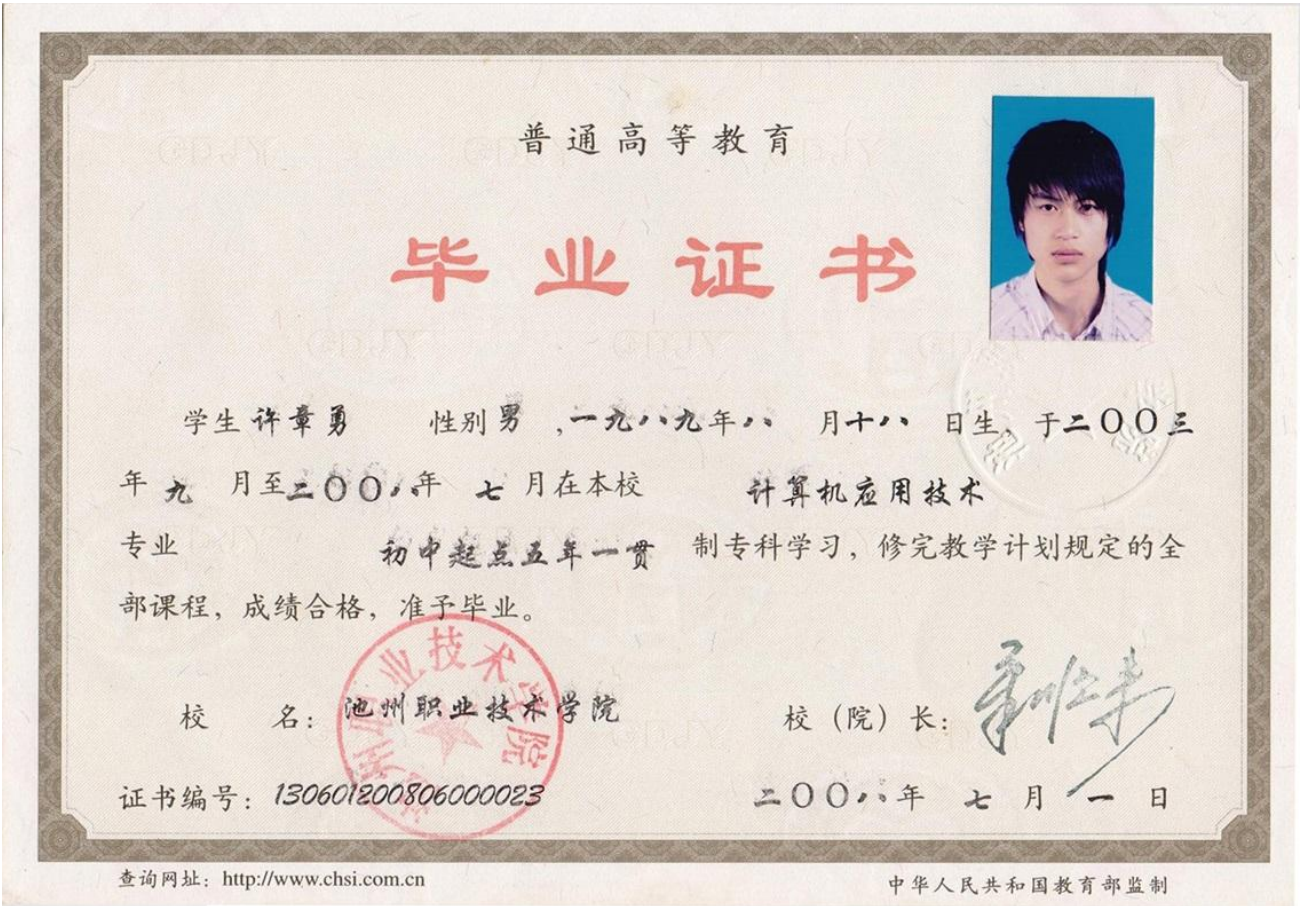 普通高等教育
毕业证书
学生 许章勇 性别 男 ,一九八九年八 月十八 日生、于二〇〇三
年 九 月至二〇〇八年 七 月在本校 计算机应用技术
专业 初中起点五年一贯 制专科学习，修完教学计划规定的全
部课程，成绩合格，准予毕业。
池州职业技术学院
校 名：池州职业技术学院 校（院）长：
证书编号：130601200806000023 二〇〇八年 七 月 一 日
查询网址：http://www.chsi.com.cn 中华人民共和国教育部监制